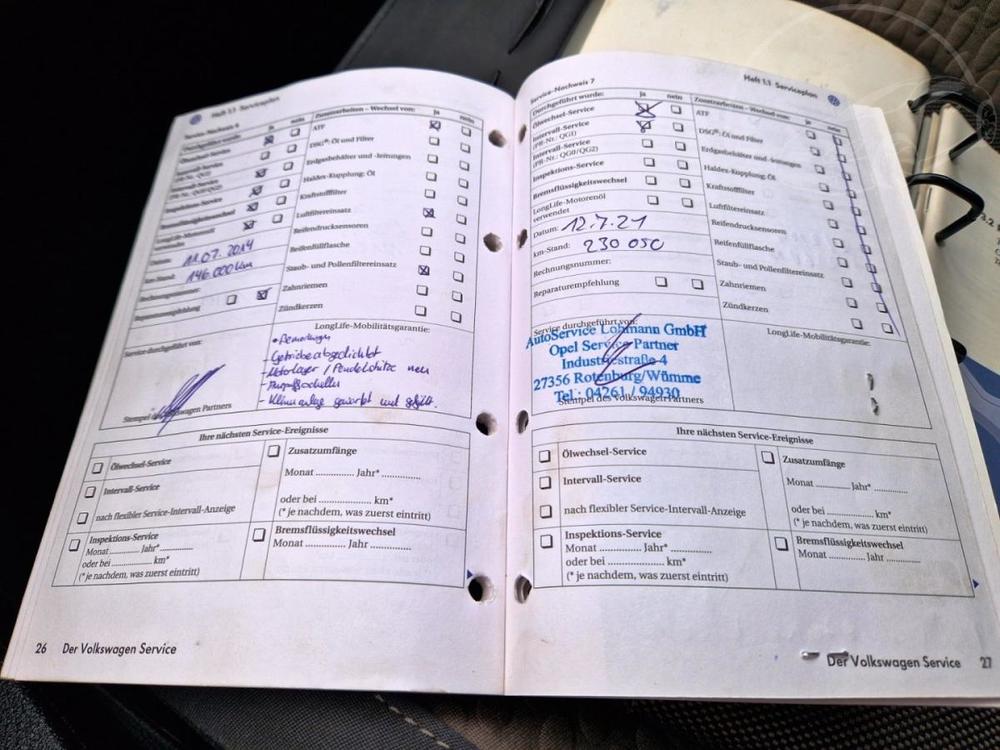 Heft 1.1 Serviceplan
Service-Nachweis 6
ja nein
Zusatzarbeiten – Wechsel von: ja nein
ATF
DSG®: Öl und Filter
Erdgasbehälter und -leitungen
Haldex-Kupplung: Öl
Kraftstofffilter
Luftfiltereinsatz
Reifendrucksensoren
Reifenfüllflasche
Staub- und Pollenfiltereinsatz
Zahnriemen
Zündkerzen
Inspektions-Service
Bremsflüssigkeitswechsel
LongLife-Motorenöl
Datum: 11.07.2014
km-Stand: 146.000 km
Rechnungsnummer:
Reparaturempfehlung
Service durchgeführt von:
Stempel des Volkswagen Partners
LongLife-Mobilitätsgarantie:
• Bemerkungen
- Getriebe abgedichtet
- Motorlager / Pendelstütze neu
- Klimaanlage gewartet und gefüllt.
Ihre nächsten Service-Ereignisse
Ölwechsel-Service
Intervall-Service
nach flexibler Service-Intervall-Anzeige
Inspektions-Service
Monat .......... Jahr* ..........
oder bei .......... km*
(* je nachdem, was zuerst eintritt)
Zusatzumfänge
Monat ............ Jahr* ............
oder bei ................ km*
(* je nachdem, was zuerst eintritt)
Bremsflüssigkeitswechsel
Monat ............ Jahr ............
26 Der Volkswagen Service
Service-Nachweis 7
Heft 1.1 Serviceplan
Durchgeführt wurde: ja nein
Ölwechsel-Service
Intervall-Service
(PR-Nr.: QG1)
Intervall-Service
(PR-Nr.: QG0/QG2)
Inspektions-Service
Bremsflüssigkeitswechsel
LongLife-Motorenöl
verwendet
Datum: 12.7.21
km-Stand: 230 050
Rechnungsnummer:
Reparaturempfehlung
Zusatzarbeiten – Wechsel von: ja nein
ATF
DSG®: Öl und Filter
Erdgasbehälter und -leitungen
Haldex-Kupplung: Öl
Kraftstofffilter
Luftfiltereinsatz
Reifendrucksensoren
Reifenfüllflasche
Staub- und Pollenfiltereinsatz
Zahnriemen
Zündkerzen
Service durchgeführt von:
AutoService Lohmann GmbH
Opel Service Partner
Industriestraße 4
27356 Rotenburg/Wümme
Tel.: 04261 / 94930
Stempel des Volkswagen Partners
LongLife-Mobilitätsgarantie:
Ihre nächsten Service-Ereignisse
Ölwechsel-Service
Intervall-Service
nach flexibler Service-Intervall-Anzeige
Inspektions-Service
Monat ............ Jahr* ............
oder bei ................ km*
(* je nachdem, was zuerst eintritt)
Zusatzumfänge
Monat .......... Jahr* ..........
oder bei .............. km*
(* je nachdem, was zuerst eintritt)
Bremsflüssigkeitswechsel
Monat .......... Jahr ..........
Der Volkswagen Service 27